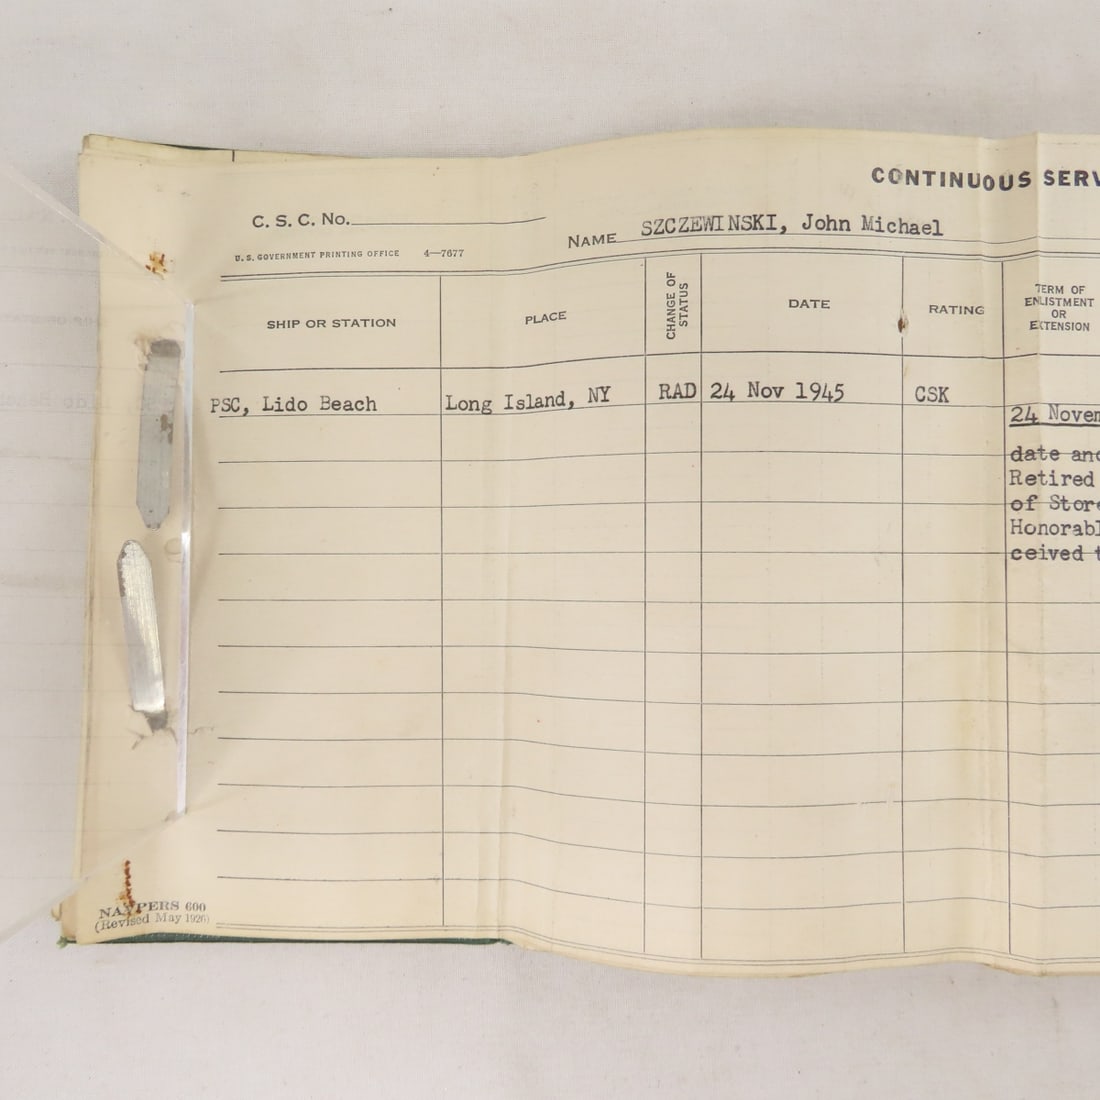 CONTINUOUS SERV
C. S. C. No.
NAME SZCZEWINSKI, John Michael
U. S. GOVERNMENT PRINTING OFFICE 4—7677
SHIP OR STATION
PLACE
CHANGE OF
STATUS
DATE
RATING
TERM OF
ENLISTMENT
OR
EXTENSION
PSC, Lido Beach Long Island, NY RAD 24 Nov 1945 CSK
24 Novem
date and
Retired
of Store
Honorabl
ceived t
NAVPERS 600
(Revised May 1926)